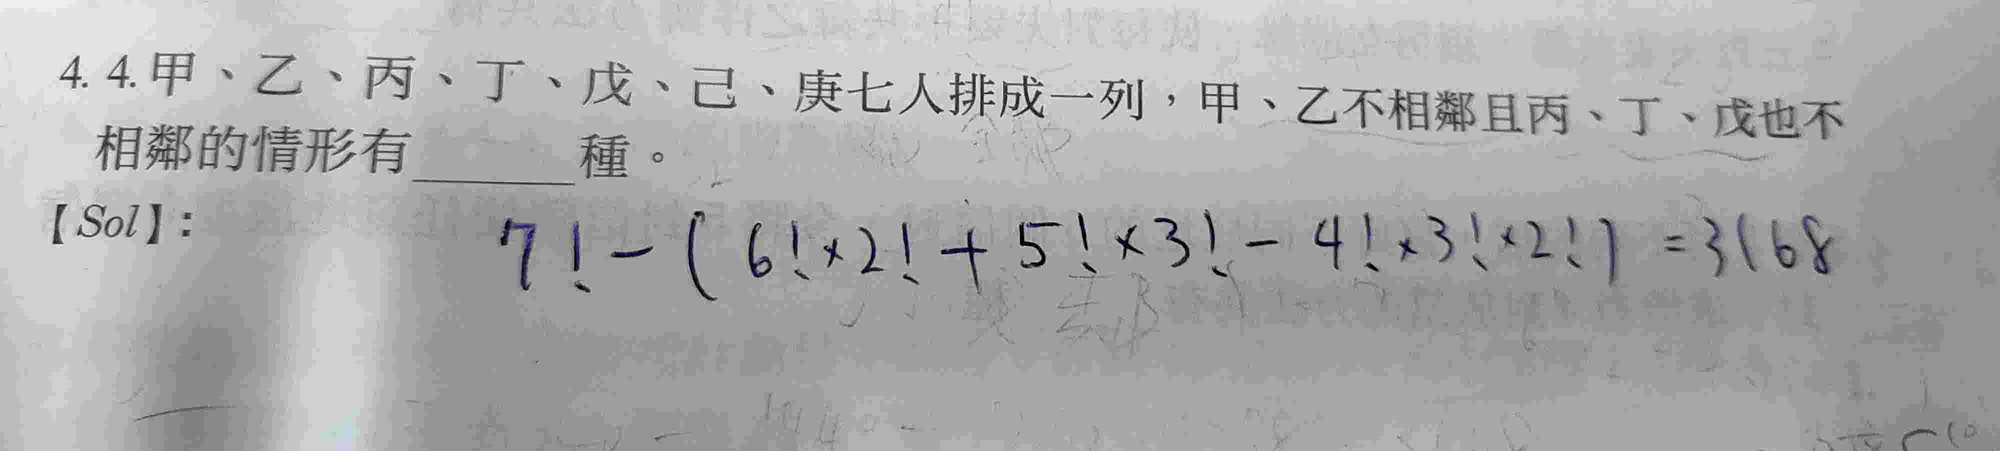 4. 4. 甲、乙、丙、丁、戊、己、庚七人排成一列，甲、乙不相鄰且丙、丁、戊也不
相鄰的情形有______種。
【Sol】：
7! - ( 6! × 2! + 5! × 3! - 4! × 3! × 2! ) = 3168